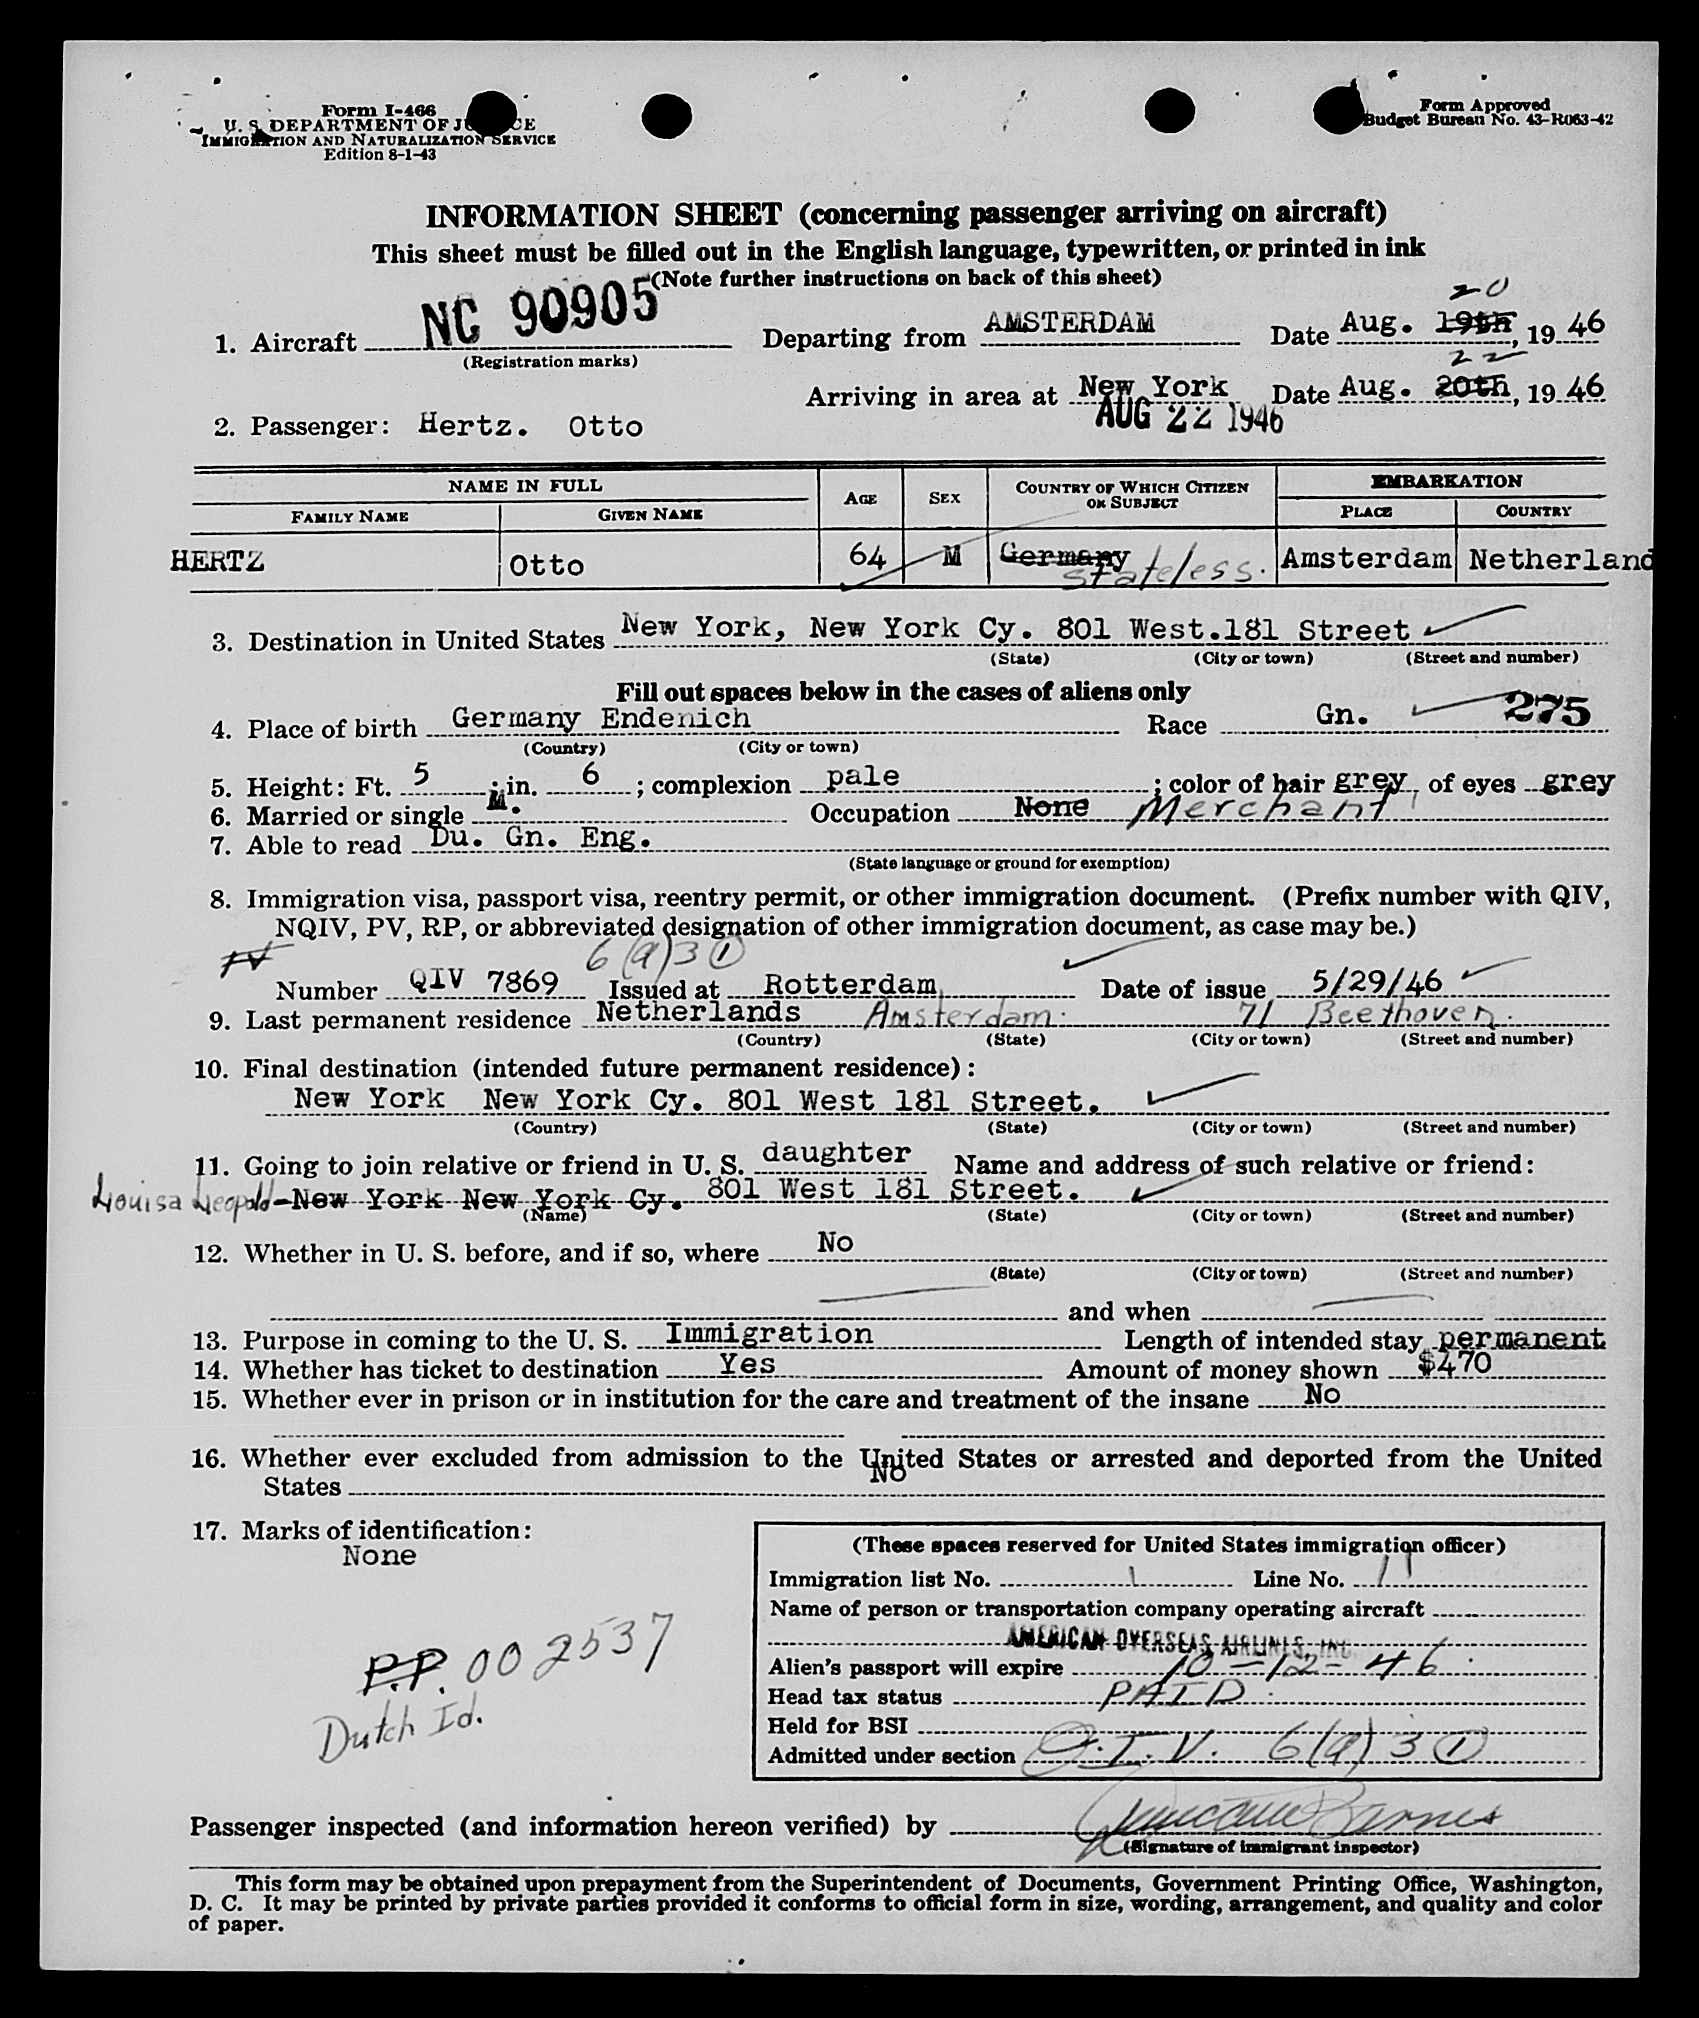 Form I-466
U. S. DEPARTMENT OF JUSTICE
IMMIGRATION AND NATURALIZATION SERVICE
Edition 8-1-43
Form Approved
Budget Bureau No. 43-R063-42
INFORMATION SHEET (concerning passenger arriving on aircraft)
This sheet must be filled out in the English language, typewritten, or printed in ink
(Note further instructions on back of this sheet)
20
1. Aircraft NC 90905 Departing from AMSTERDAM Date Aug. 19th, 19 46
(Registration marks)
22
Arriving in area at New York Date Aug. 20th, 19 46
AUG 22 1946
2. Passenger: Hertz. Otto
NAME IN FULL AGE SEX COUNTRY OF WHICH CITIZEN OR SUBJECT EMBARKATION
FAMILY NAME GIVEN NAME PLACE COUNTRY
HERTZ Otto 64 M Germany stateless. Amsterdam Netherland
3. Destination in United States New York, New York Cy. 801 West.181 Street
(State) (City or town) (Street and number)
Fill out spaces below in the cases of aliens only
4. Place of birth Germany Endenich Race Gn. 275
(Country) (City or town)
5. Height: Ft. 5 ; in. 6 ; complexion pale ; color of hair grey, of eyes grey
6. Married or single M. Occupation None Merchant
7. Able to read Du. Gn. Eng.
(State language or ground for exemption)
8. Immigration visa, passport visa, reentry permit, or other immigration document. (Prefix number with QIV,
NQIV, PV, RP, or abbreviated designation of other immigration document, as case may be.)
IV 6(a)3 1
Number QIV 7869 Issued at Rotterdam Date of issue 5/29/46
9. Last permanent residence Netherlands Amsterdam. 71 Beethoven.
(Country) (State) (City or town) (Street and number)
10. Final destination (intended future permanent residence):
New York New York Cy. 801 West 181 Street.
(Country) (State) (City or town) (Street and number)
11. Going to join relative or friend in U. S. daughter Name and address of such relative or friend:
Louisa Leopold-New York New York Cy. 801 West 181 Street.
(Name) (State) (City or town) (Street and number)
12. Whether in U. S. before, and if so, where No
(State) (City or town) (Street and number)
and when
13. Purpose in coming to the U. S. Immigration Length of intended stay permanent
14. Whether has ticket to destination Yes Amount of money shown $470
15. Whether ever in prison or in institution for the care and treatment of the insane No
16. Whether ever excluded from admission to the United States or arrested and deported from the United
States No
17. Marks of identification:
None
P.P. 002537
Dutch Id.
(These spaces reserved for United States immigration officer)
Immigration list No. 1 Line No. 11
Name of person or transportation company operating aircraft
AMERICAN OVERSEAS AIRLINES, INC.
Alien's passport will expire 10-12-46
Head tax status PAID.
Held for BSI
Admitted under section Q.I.V. 6(a)3 1
Passenger inspected (and information hereon verified) by Barnes
(Signature of immigrant inspector)
This form may be obtained upon prepayment from the Superintendent of Documents, Government Printing Office, Washington,
D. C. It may be printed by private parties provided it conforms to official form in size, wording, arrangement, and quality and color
of paper.